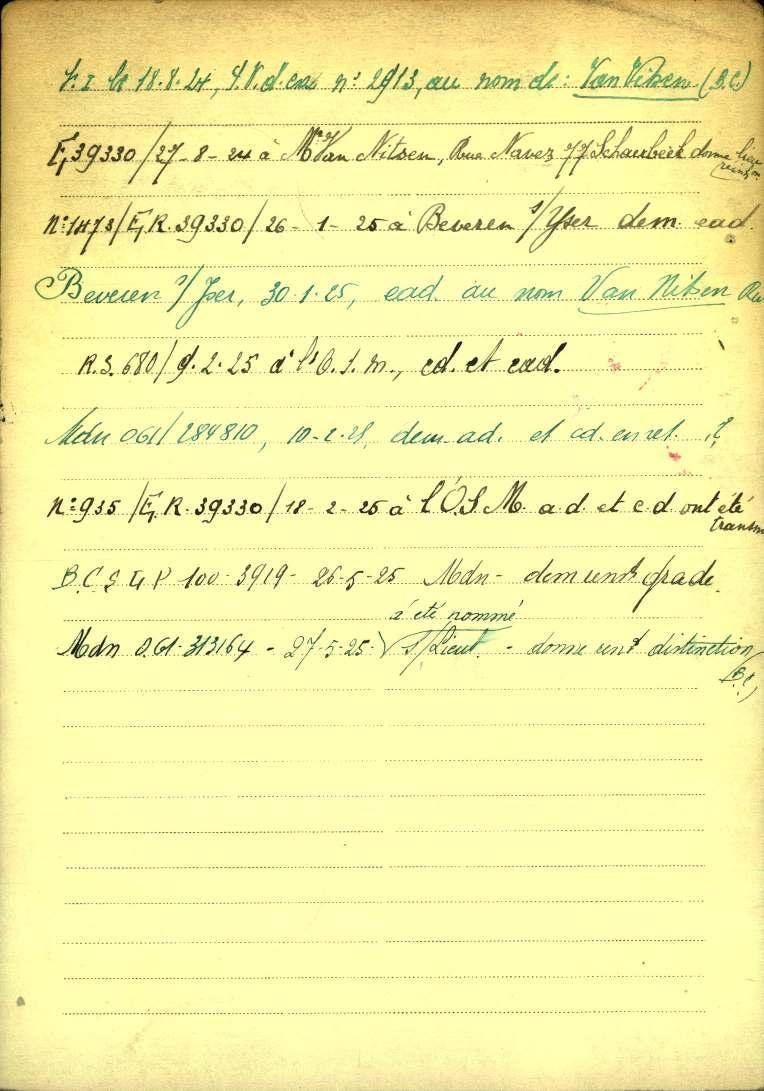 le 18.8.24, P.V. d'ex n° 2913, au nom de: Van Nitsen (B.C.)
E, 39330/27-8-24 à Mr Van Nitsen, Rue Navez 77 Schaerbeek donne lieu
réinhon.
N° 1473/E, R. 39330/26-1-25 à Beveren s/Yser dem. ead.
Beveren s/Yser, 30.1.25, ead. au nom Van Nitsen
R.S. 680/9.2.25 à l'O.S.M., cd. et ead.
Mdn 061/284810, 10-2-25, dem. ad. et cd.
N° 935/E, R. 39330/18-2-25 à l'O.S.M. a.d. et c.d ont été
transm
B.C.S 100-3919-26-5-25 Mdn - dem rensts grade.
a été nommé
Mdn 061-313164 - 27-5-25- s/Lieut. - donne renst distinction
(B.C)